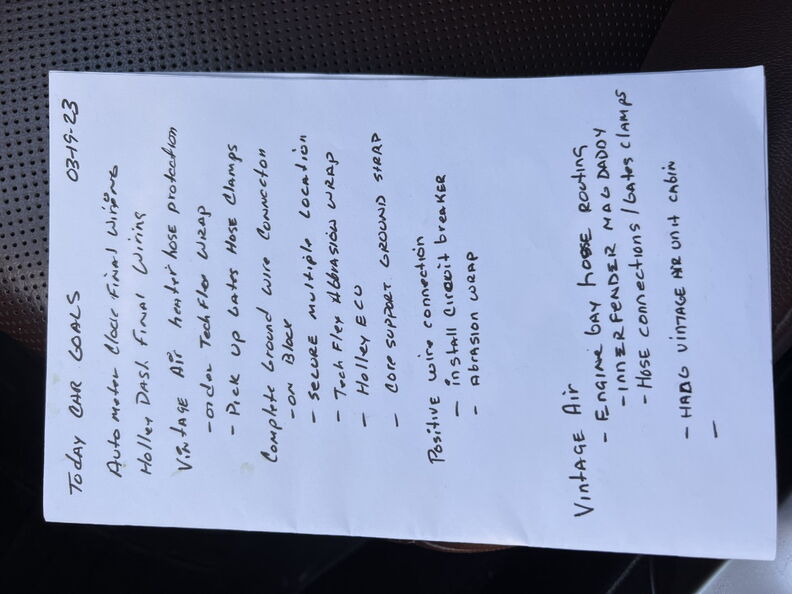 TODAY CAR GOALS 03-19-23
Autometer Clock Final Wiring
Holley Dash Final Wiring
Vintage Air heater hose protection
- order Tech Flex WRAP
- Pick up Gates Hose Clamps
Complete Ground Wire Connection
- ON Block
- SECURE Multiple LOCATION
- Tech Flex ABRASION WRAP
- Holley ECU
- Core SUPPORT GROUND STRAP
Positive wire connection
- install Circuit breaker
- Abrasion WRAP
Vintage Air
- Engine bay hose ROUTING
- INNER FENDER MAG DADDY
- Hose connections/Gates Clamps
- HANG VINTAGE AIR UNIT CABIN
-